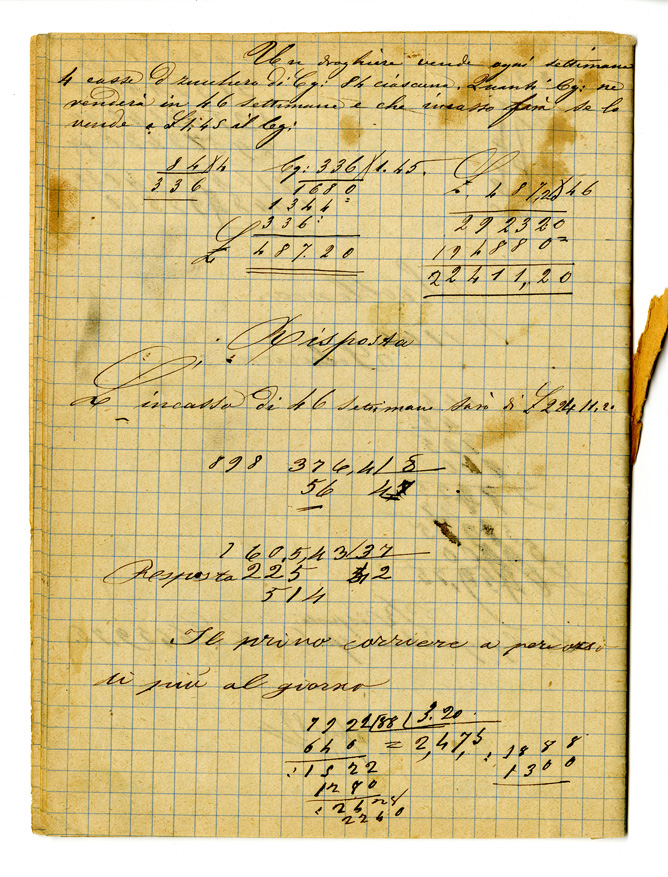 Un droghiere vende ogni settimana
4 casse d zucchero di Cg: 84 ciascuna. Quanti Cg: ne
venderà in 46 settimane e che incasso farà se lo
vende a £ 1,45 il Cg:
84 X 4
336
Cg: 336 X 1.45.
1680
1344
336
£ 487.20
£. 487,20 X 46
292320
194880
22411,20
Risposta
L' incasso di 46 settimane sarà di £ 22411.20
898 376,4 / 8
56 47
760,5,43 / 37
Risposta 225 2
514
Il primo corriere a percorso
di più al giorno
7922,88 / 3.20
640 = 2,475
1522
1280
2240
1888
1300